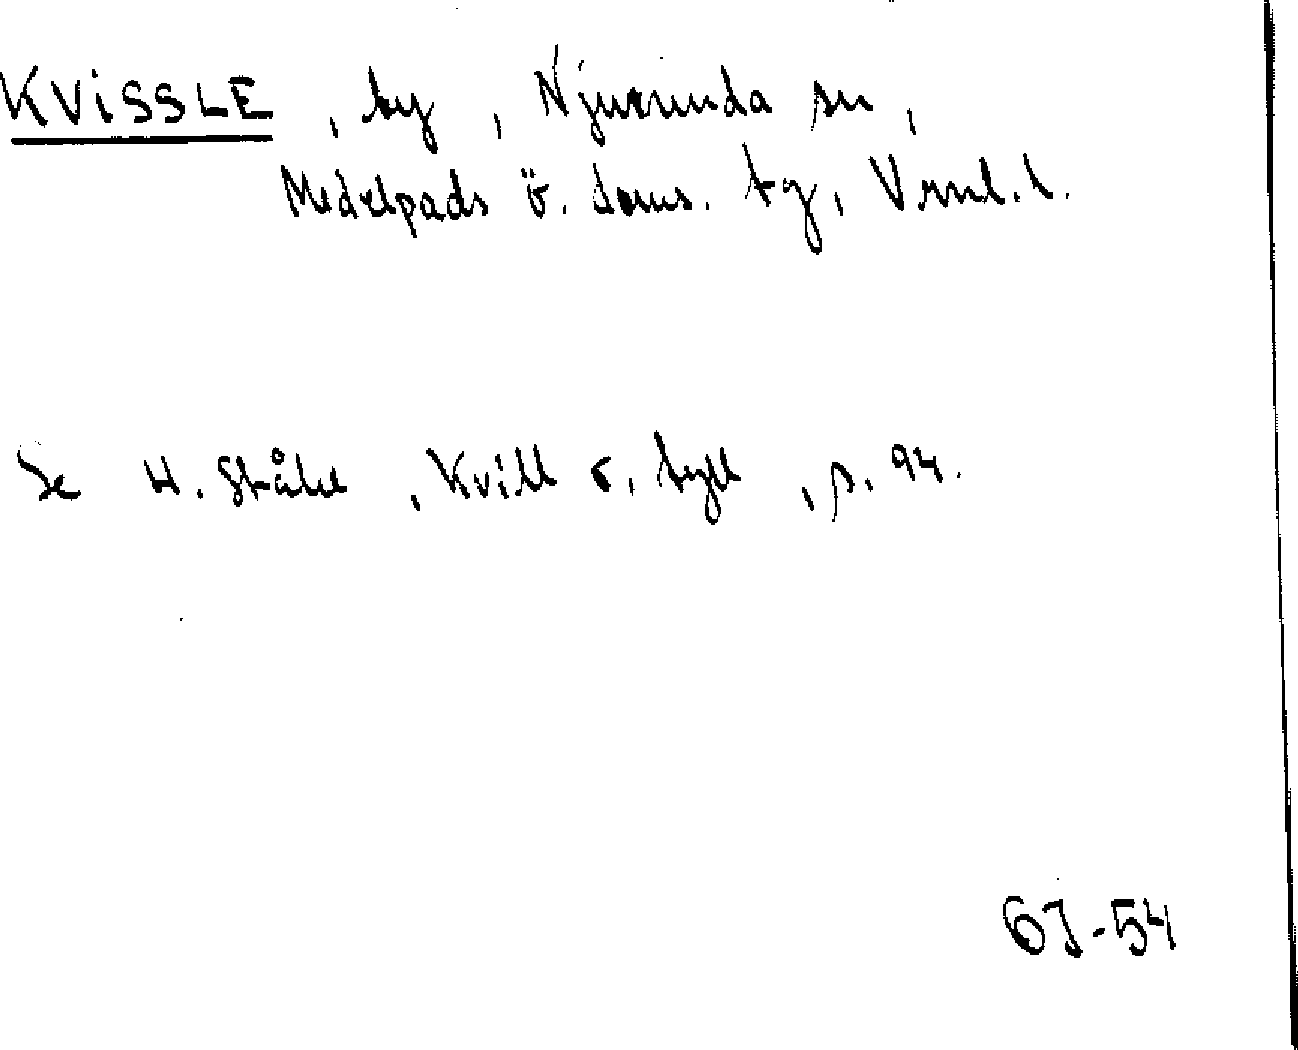 KVISSLE, by, Njurunda sn,
Medelpads ö. doms. tg, Vrnl. l.
Se H. Ståhl, Kvill o. tyll, s. 94.
67-54